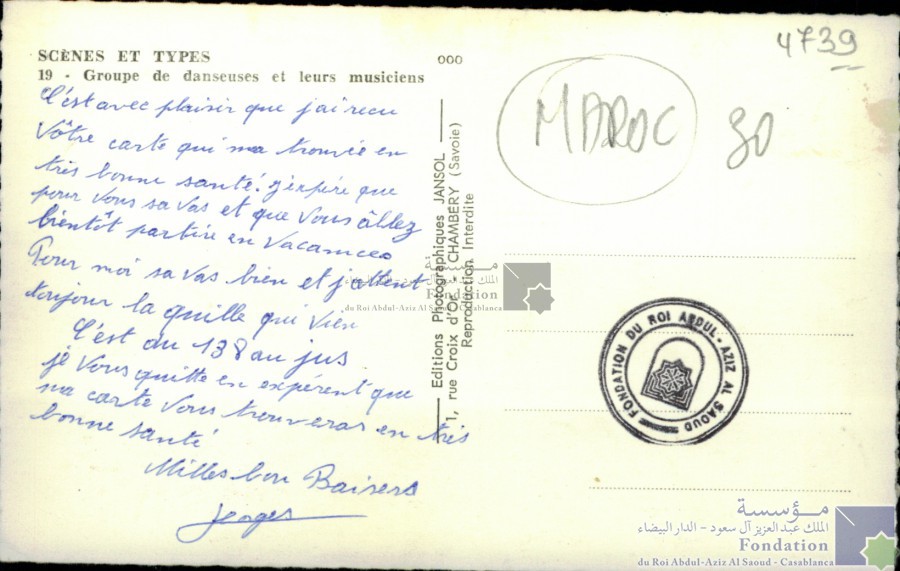 SCÈNES ET TYPES
19 - Groupe de danseuses et leurs musiciens
000
C'est avec plaisir que j'ai recu
Vôtre carte qui ma trouvée en
très bonne santé. j'éxpére que
pour vous sa vas et que vous âllez
bientôt partire en vacances
Pour moi sa vas bien et j'attent
toujour la quille qui vien
C'est du 138 au jus
je vous quitte en expérent que
ma carte vous trouveras en très
bonne santé
Milles bon Baisers
Jorges
Editions Photographiques JANSOL
1, rue Croix d'Or - CHAMBÉRY (Savoie)
Reproduction Interdite
4739
MAROC
30
FONDATION DU ROI ABDUL-AZIZ AL SAOUD
مؤسسة
الملك عبد العزيز آل سعود - الدار البيضاء
Fondation
du Roi Abdul-Aziz Al Saoud - Casablanca
مؤسسة
الملك عبد العزيز آل سعود - الدار البيضاء
Fondation
du Roi Abdul-Aziz Al Saoud - Casablanca